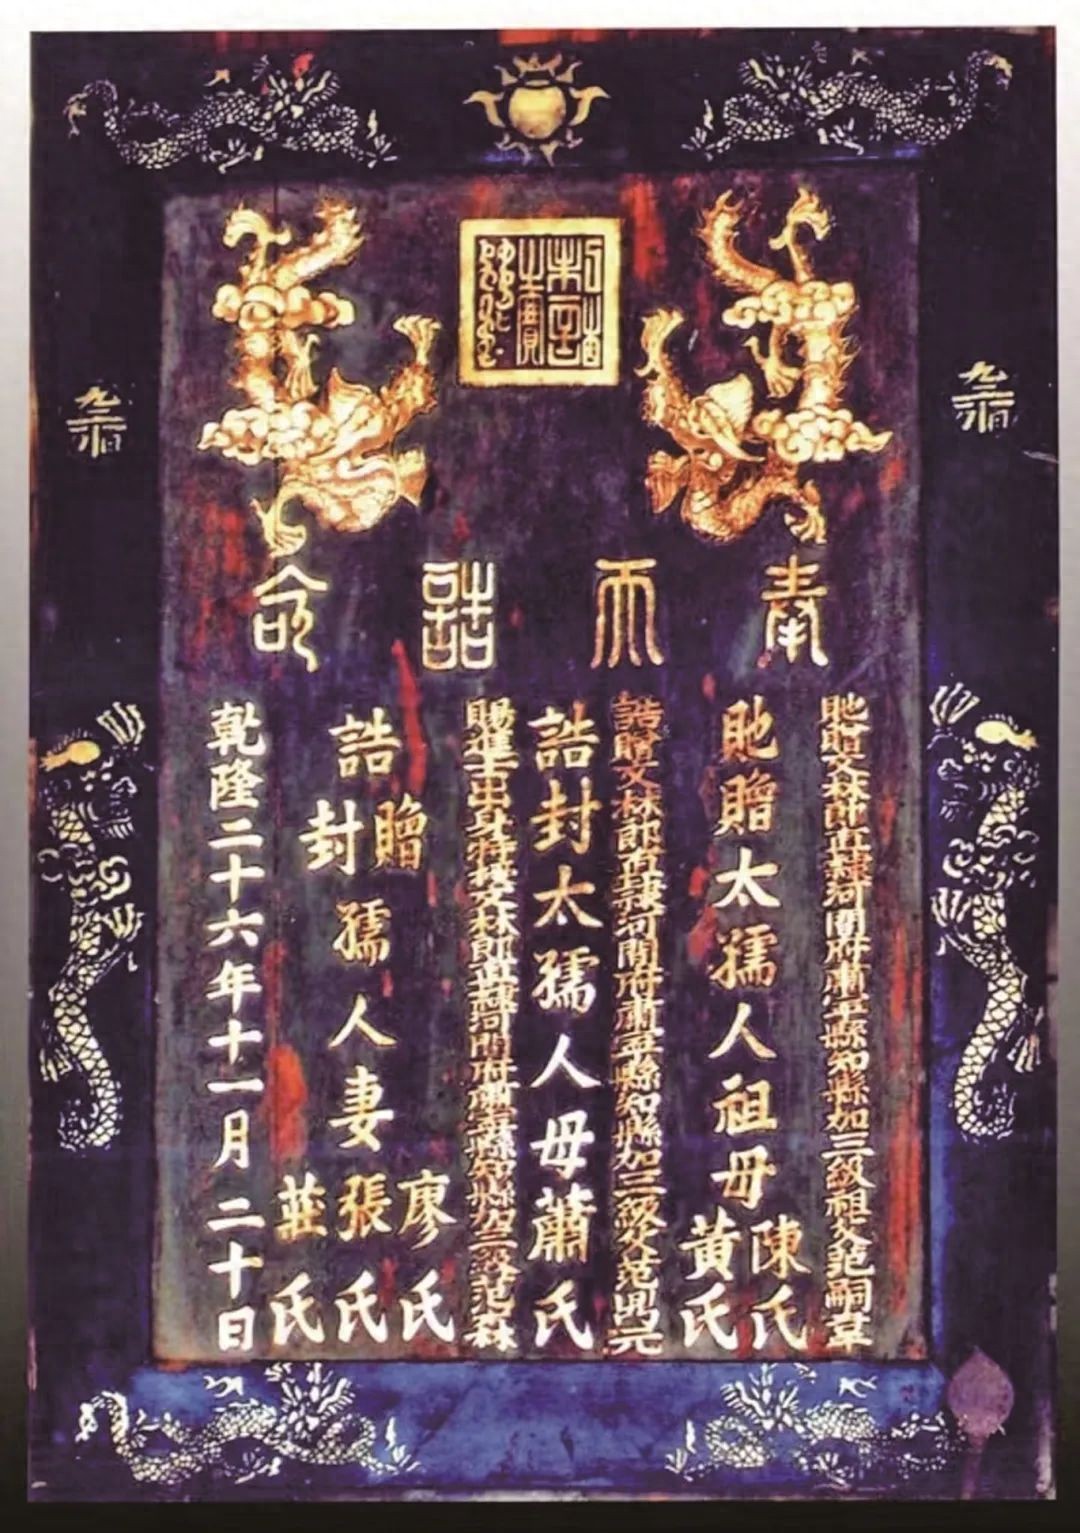 奉天誥命
貤贈文林郎直隸河間府肅寧縣知縣加三級祖父范嗣章
貤贈太孺人祖母陳氏黃氏
誥贈文林郎直隸河間府肅寧縣知縣加三級父范鼎元
誥封太孺人母蕭氏
賜進士出身特授文林郎直隸河間府肅寧縣知縣加三級范森
誥贈封孺人妻廖氏張氏莊氏
乾隆二十六年十一月二十日